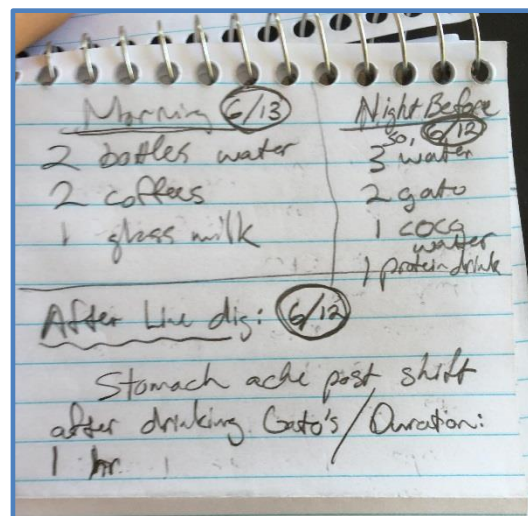 Morning 6/13
2 bottles water
2 coffees
1 glass milk
Night Before
so, 6/12
3 water
2 gato
1 coco
water
1 protein drink
After Live dig: 6/12
Stomach ache post shift
after drinking Gato's / Duration:
1 hr.